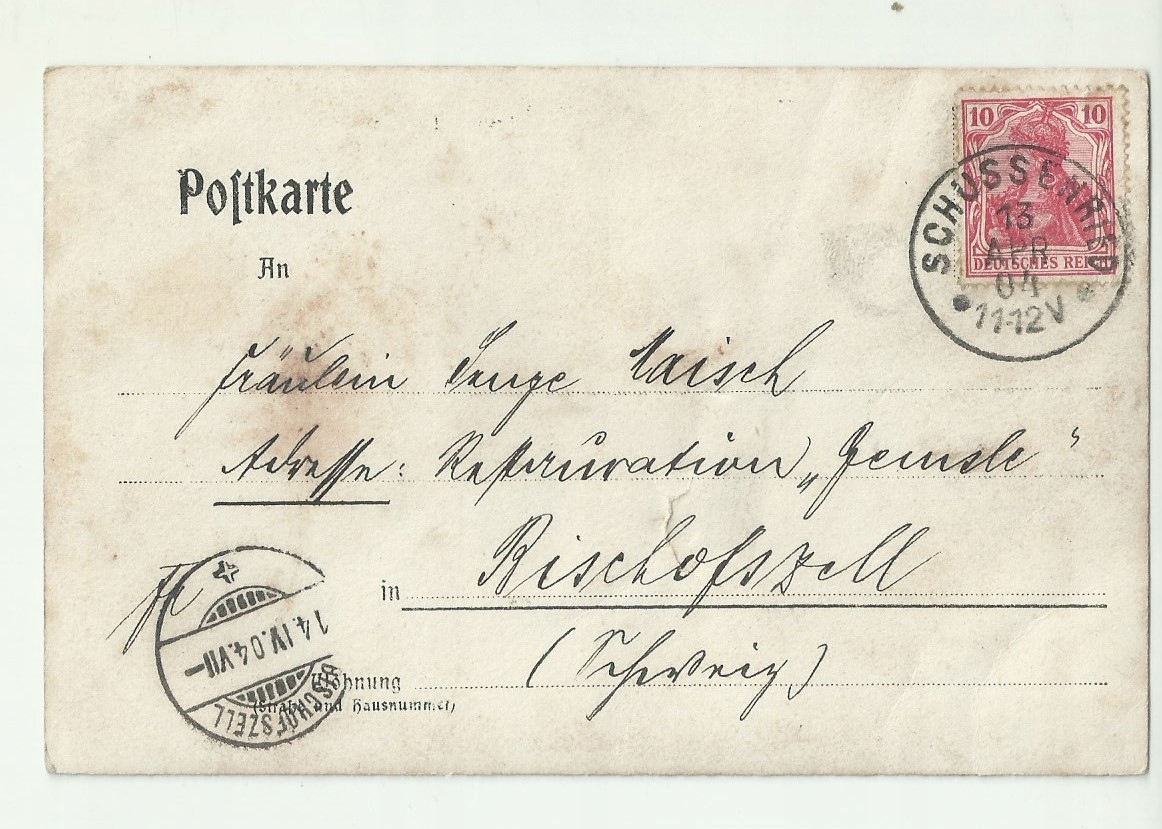 10 10
DEUTSCHES REICH
SCHUSSENRIED
13
APR
04
11-12V
Poſtkarte
An
Fräulein Maisch
Adresse: Restauration „Gemsle“
in Bischofszell
(Schweiz)
Wohnung
(Straße und Hausnummer)
14.IV.04.VII-
BISCHOFSZELL